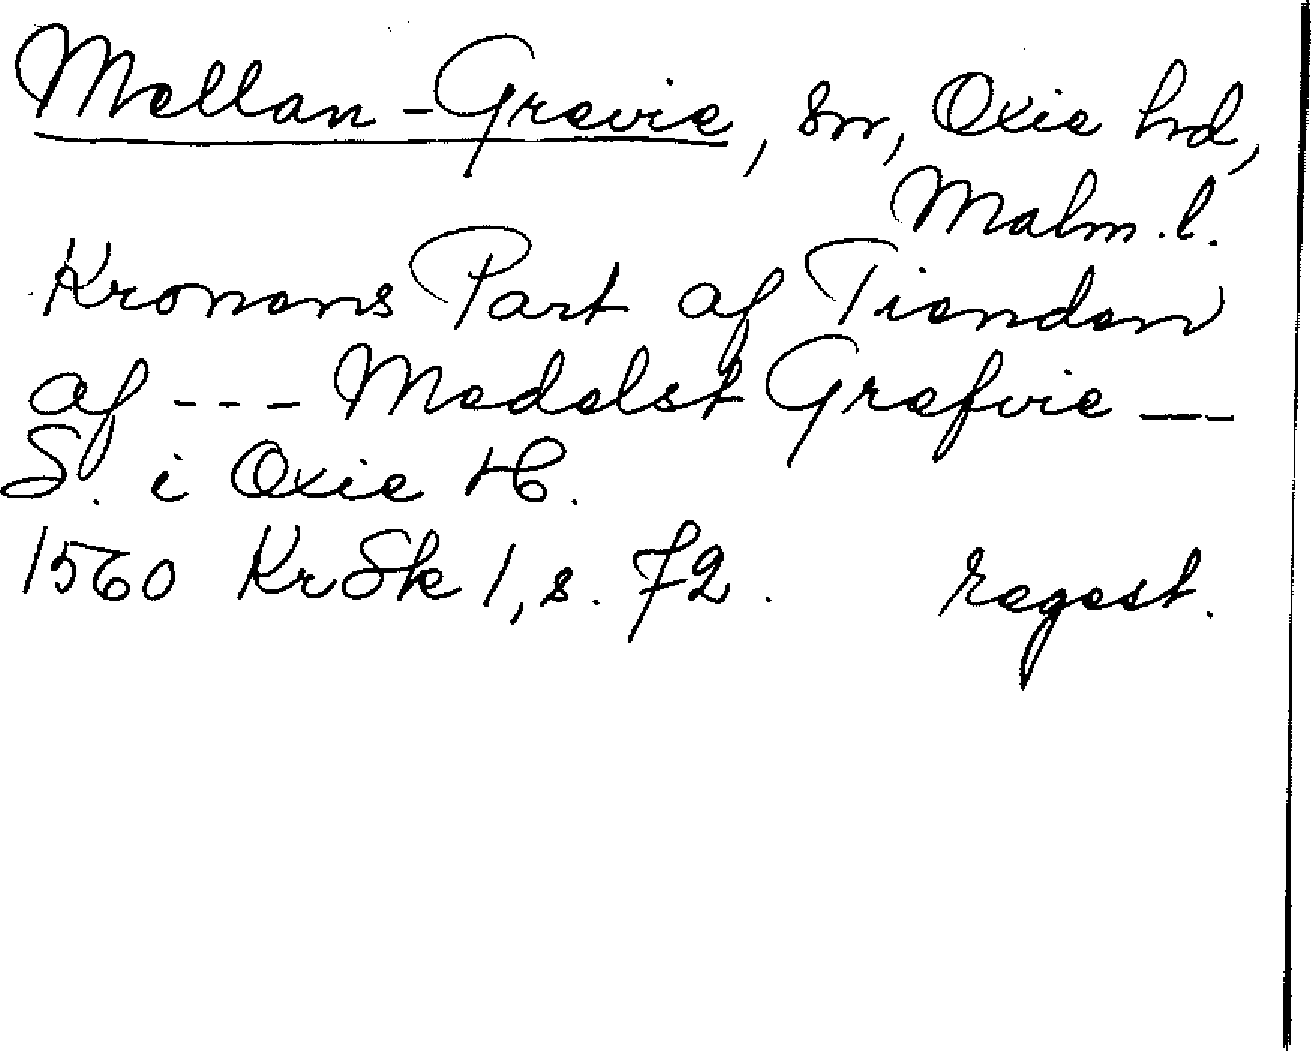 Mellan-Grevie, sn, Oxie hd,
Malm.l.
Kronens Part af Tienden
af --- Medelst Grefvie --
S. i Oxie H.
1560 KrSk 1, s. 72. regest.